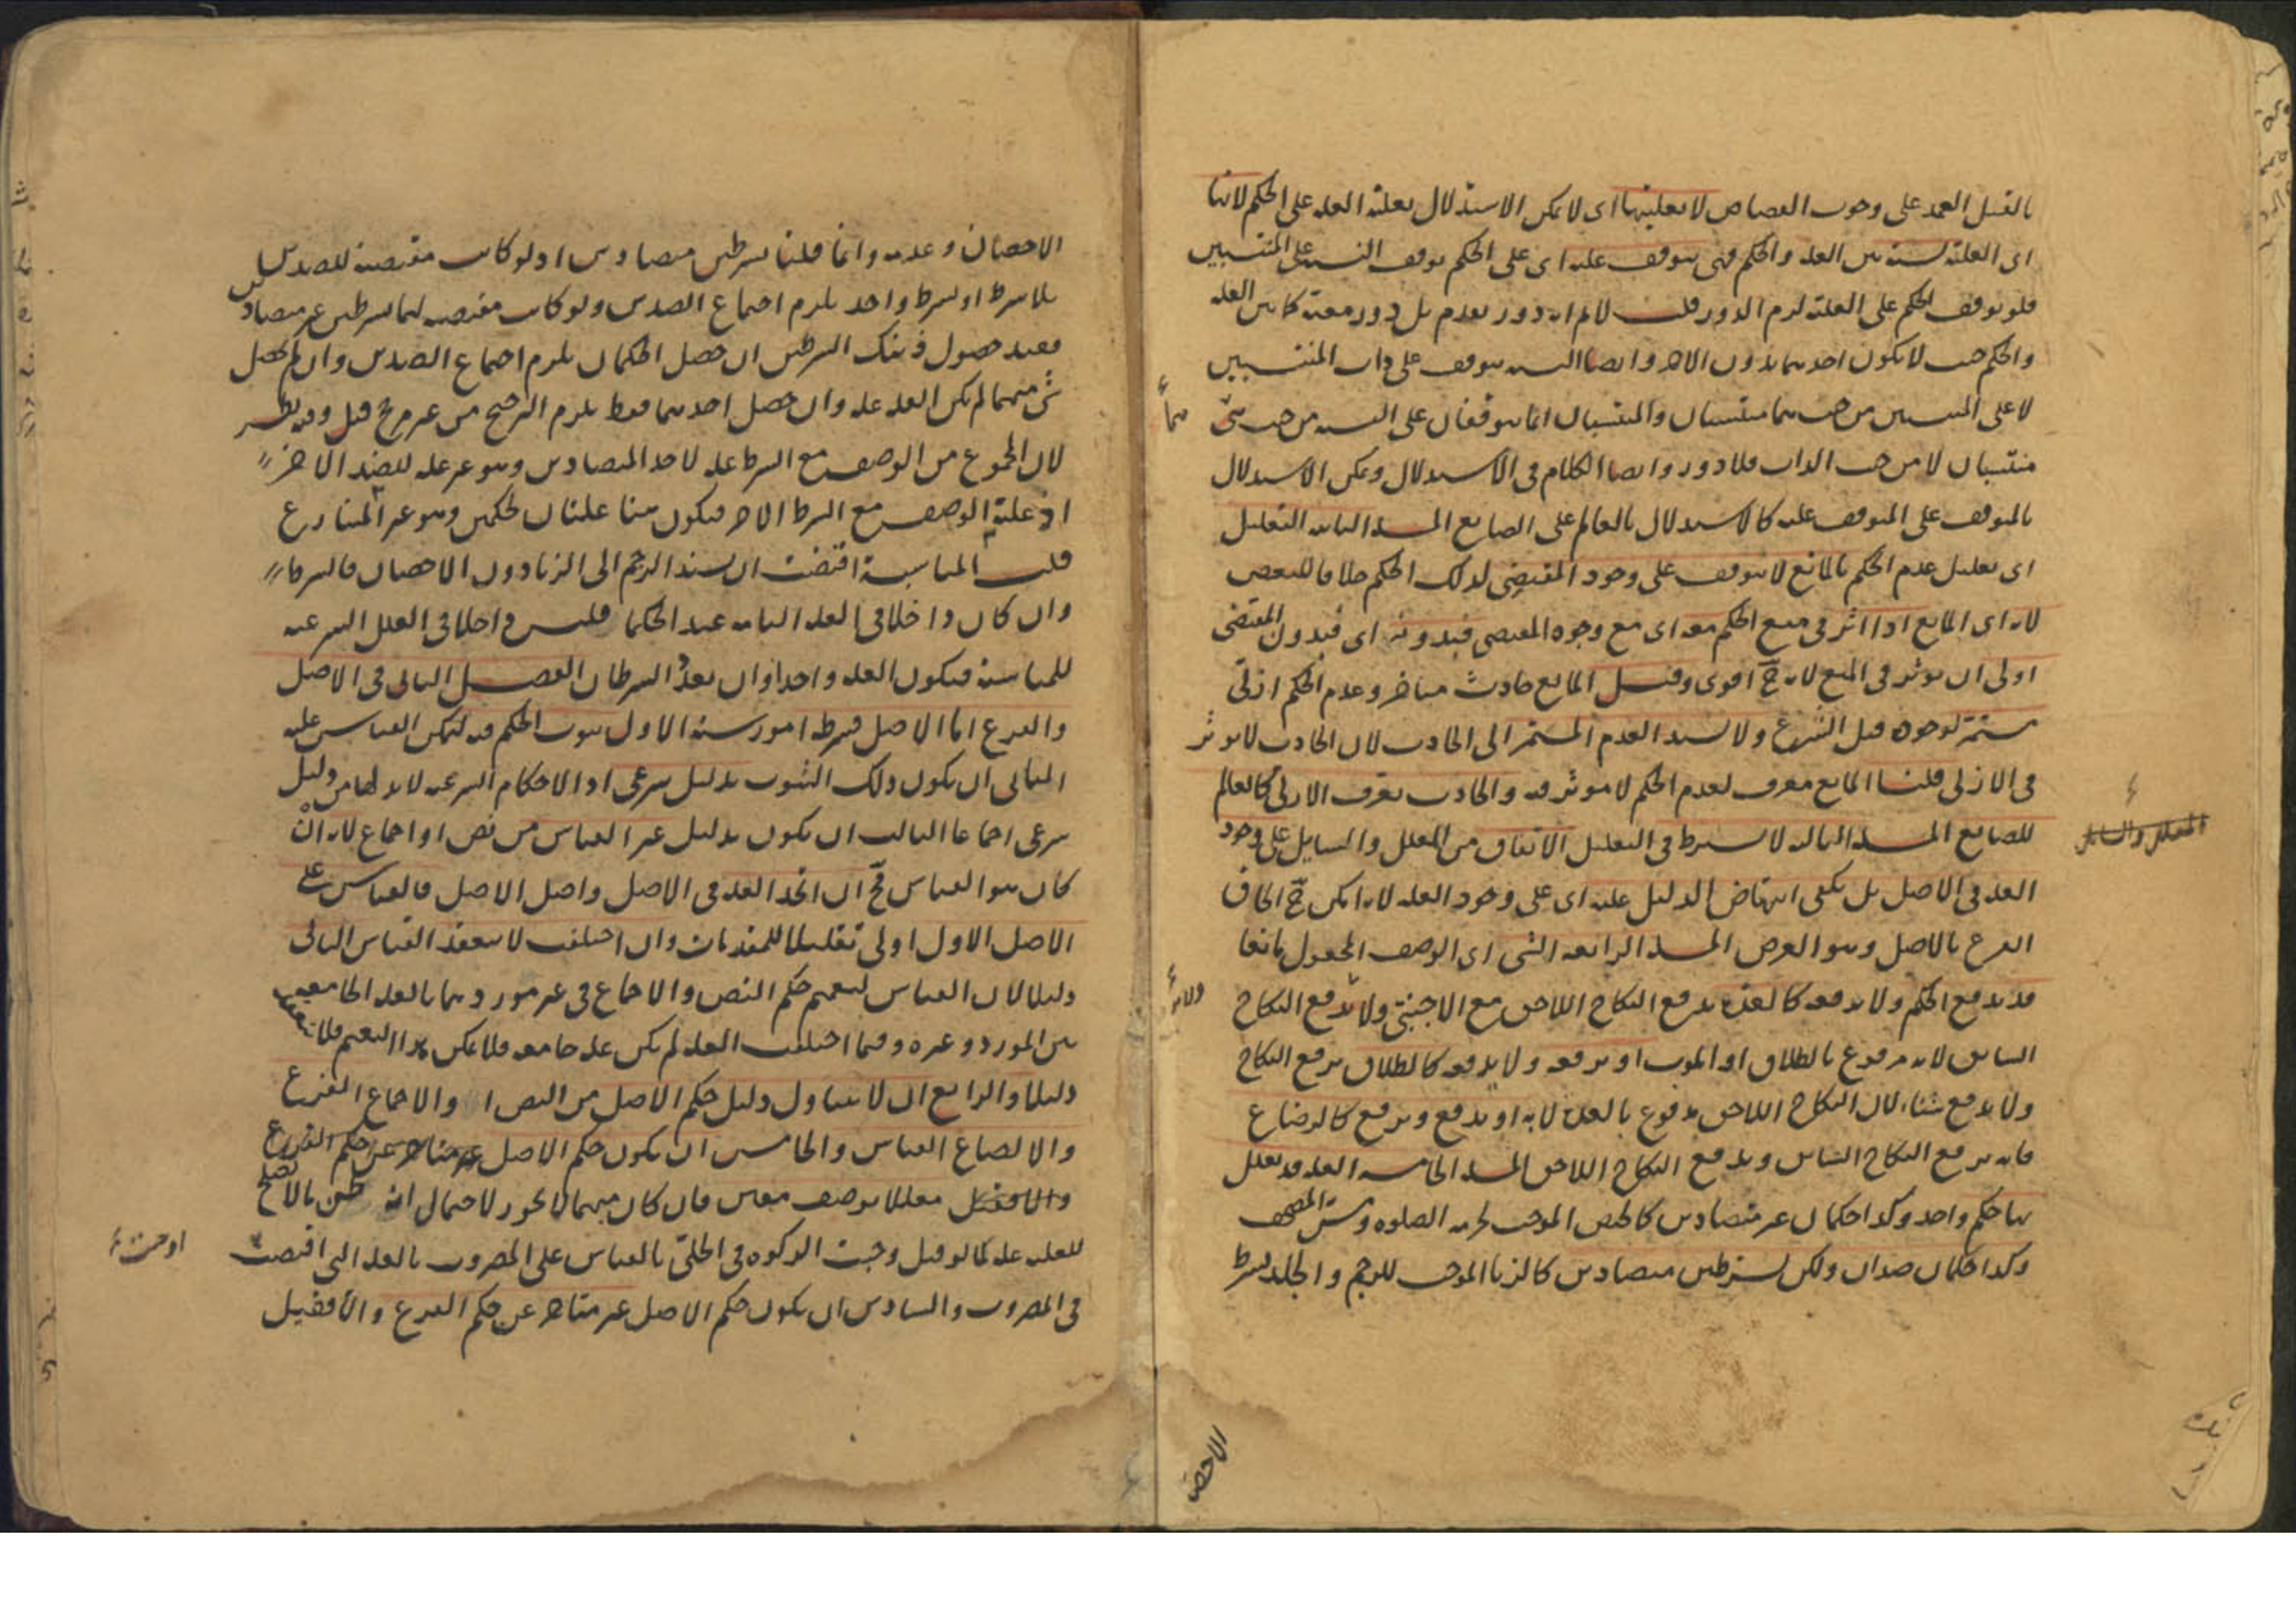 بالقتل العمد على وجوب القصاص لا بعليتها اى لا يمكن الاستدلال بعلية العلة على الحكم لانها
اى العلية نسبة بين العلة والحكم فهى تتوقف عليه اى على الحكم توقف النسبة على المنتسبين
فلو توقف الحكم على العلية لزم الدور قلت لا لم انه دور تقدم بل دور معية كما بين العلة
والحكم حيث لا يكون احدهما بدون الاخر وايضا النسبة تتوقف على ذات المنتسبين
لا على المنتسبين من حيث هما منتسبان والمنتسبان انما يتوقفان على النسبة من حيث
هما
منتسبان لا من حيث الذات فلا دور وايضا الكلام فى الاستدلال ويمكن الاستدلال
بالمتوقف على المتوقف عليه كالاستدلال بالعالم على الصانع المسئلة الثانية التعليل
اى تعليل عدم الحكم بالمانع لا يتوقف على وجود المقتضى لذلك الحكم خلافا للبعض
لانه اى المانع اذا اثر فى منع الحكم معه اى مع وجود المقتضى فبدونه اى فبدون المقتضى
اولى ان يوثر فى المنع لانه ح اقوى وقيل المانع حادث متاخر وعدم الحكم ازلى
مستمر لوجوده قبل الشرع ولا يسند العدم المستمر الى الحادث لان الحادث لا يوثر
فى الازلى قلنا المانع معرف لعدم الحكم لا موثر فيه والحادث يعرف الازلى كالعالم
للصانع المسئلة الثالثة لا يشترط فى التعليل الاتفاق من المعلل والسايل على وجود
المعلل والسايل
العلة فى الاصل بل يكفى انتهاض الدليل عليه اى على وجود العلة لانه امكن ح الحاق
الفرع بالاصل وهو الغرض المسئلة الرابعة الشى اى الوصف المجعول مانعا
قد يدفع الحكم ولا يرفعه كالعدة يدفع النكاح اللاحق مع الاجنبى ولا يرفع النكاح
السابق لانه مرفوع بالطلاق او الموت او يرفعه ولا يدفعه كالطلاق يرفع النكاح
ولا يدفع شيئا لان النكاح اللاحق مدفوع بالعدة لا به او يدفع ويرفع كالرضاع
فانه يرفع النكاح السابق ويدفع النكاح اللاحق المسئلة الخامسة العلة قد يعلل
بها حكم واحد وكذا حكمان غير متضادين كالحيض الموجب لحرمة الصلوة ومس المصحف
وكذا حكمان ضدان ولكن بشرطين متضادين كالزنا الموجب للرجم والجلد بشرط
الاحصان
الاحصان وعدمه وانما قلنا بشرطين متضادين اذ لو كانت مقتضية للضدين
بلا شرط او بشرط واحد يلزم اجتماع الضدين ولو كانت مقتضية لهما بشرطين غير متضادين
فعند حصول ذينك الشرطين ان حصل الحكمان يلزم اجتماع الضدين وان لم يحصل
شى منهما لم يكن العلة علة وان حصل احدهما فقط يلزم الترجيح من غير مرجح قيل وفيه نظر
لان المجموع من الوصف مع الشرط علة لاحد المتضادين وهو غير علة للضد الاخر
اذ علية الوصف مع الشرط الاخر فيكون هنا علتان لحكمين وهو غير المتنازع
قلت المناسبة اقتضت ان يسند الرجم الى الزنا دون الاحصان فالشرط
وان كان داخلا فى العلة التامة عند الحكما فليس داخلا فى العلل الشرعية
للمناسبة فيكون العلة واحدا وان تعدد الشرطان الفصل الثانى فى الاصل
والفرع اما الاصل فشرطه امور ستة الاول ثبوت الحكم فيه ليمكن القياس عليه
الثانى ان يكون ذلك الثبوت بدليل شرعى اذ الاحكام الشرعية لا بد لها من دليل
شرعى اجماعا الثالث ان يكون بدليل غير القياس من نص او اجماع لانه ان
كان هو القياس فح ان اتحد العلة فى الاصل واصل الاصل فالقياس على
الاصل الاول اولى تقليلا للمقدمات وان اختلف لا ينعقد القياس الثانى
دليلا لان القياس لتعميم حكم النص والاجماع فى غير موردهما بالعلة الجامعة
بين المورد وغيره وفيما اختلف العلة لم يكن علة جامعة فلا يمكن هذا التعميم فلا ينعقد
دليلا والرابع ان لا يتناول دليل حكم الاصل من النص والاجماع الفرع
والا لضاع القياس والخامس ان يكون حكم الاصل
معللا بوصف معين فان كان مبهما لا يجوز لاحتمال ان
للعلية علة كما لو قيل وجبت الزكوة فى الحلى بالقياس على المضروب بالعلة التى اقتضت
اوجبت
فى المضروب والسادس ان يكون حكم الاصل غير متاخر عن حكم الفرع والا فقيل